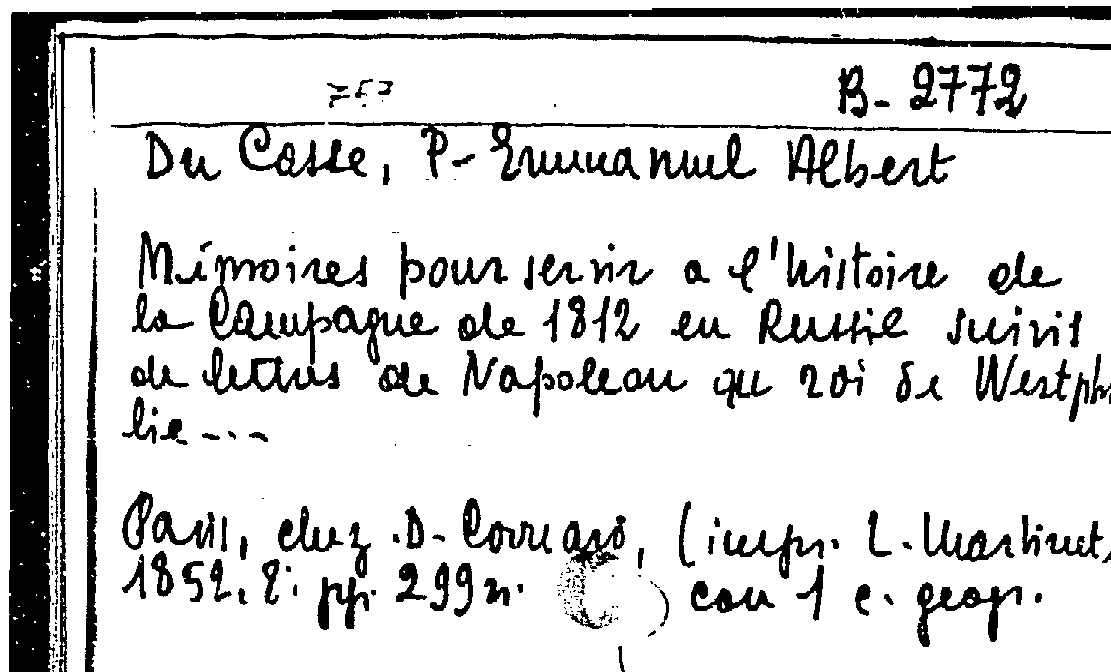 B- 2772
Du Casse, P- Emmanuel Albert
Mémoires pour servir a l'histoire de
la Campagne de 1812 en Russie suivis
de lettres de Napoleau qu roi de Westpha
lie ---
Paris, chez .D. Corread, (impr. L. Martinet,
1852. 8: pp. 299 n. con 1 c. geogr.